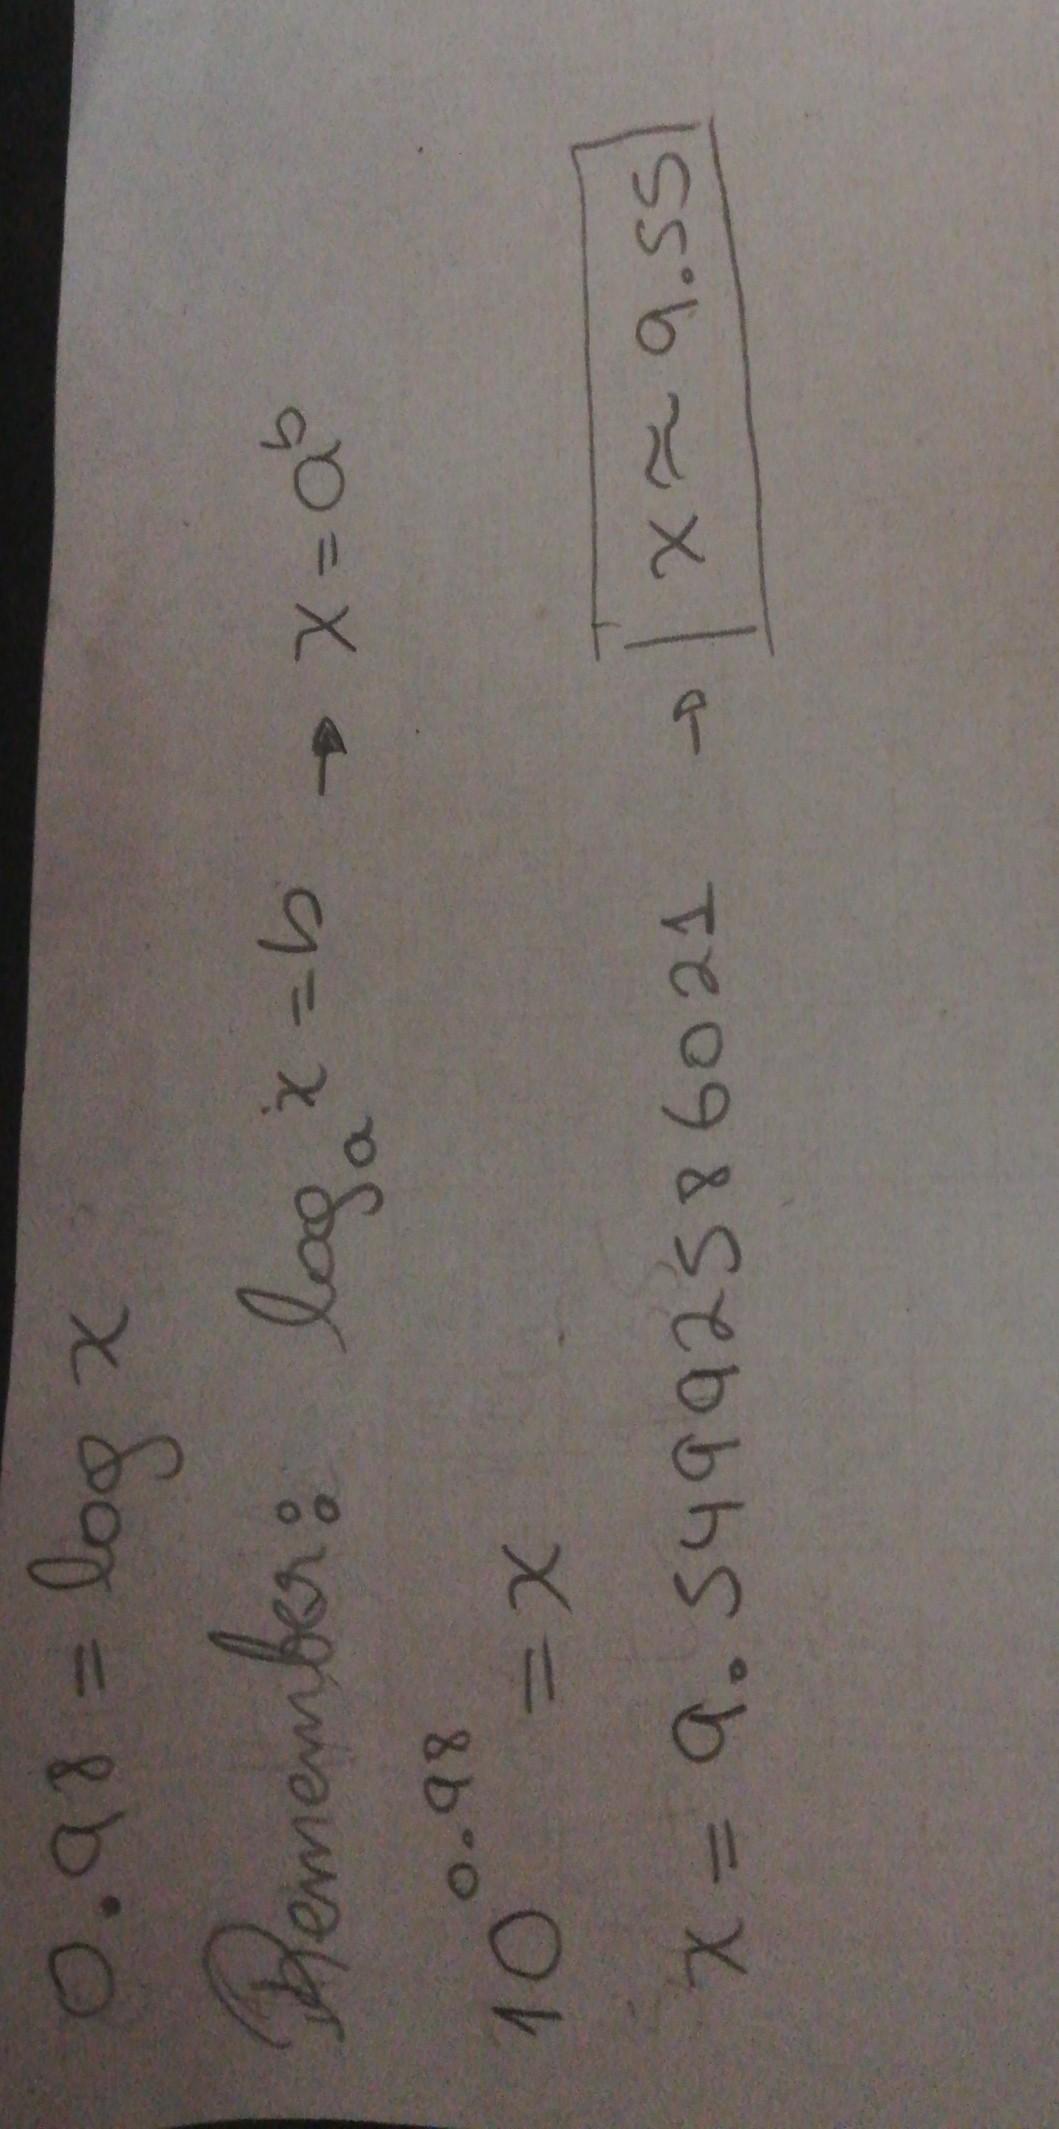 0.98 = log x
Remember: logₐ x = b → x = aᵇ
10⁰·⁹⁸ = x
x = 9.54992586021 → x ≈ 9.55